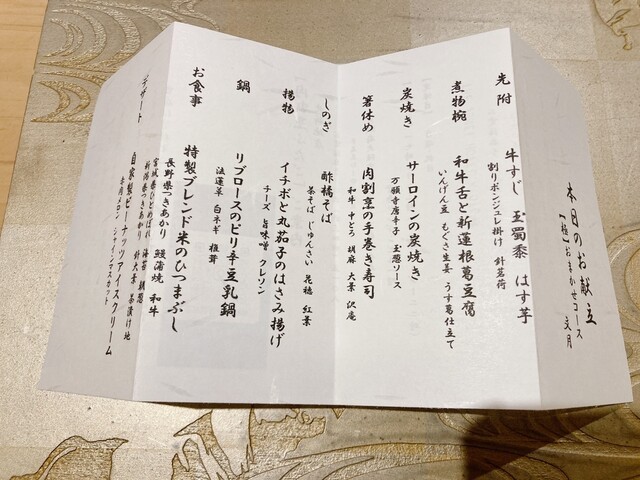 本日のお献立
【極】おまかせコース 文月
先附
牛すじ 玉蜀黍 はす芋
割りポンジュレ掛け 針茗荷
煮物椀
和牛舌と新蓮根葛豆腐
いんげん豆 もぐさ生姜 うす葛仕立て
炭焼き
サーロインの炭焼き
万願寺唐辛子 玉葱ソース
箸休め
肉割烹の手巻き寿司
和牛 中とろ 胡麻 大葉 沢庵
しのぎ
酢橘そば
茶そば じゅんさい 花穂 紅葉
揚物
イチボと丸茄子のはさみ揚げ
チーズ 旨味噌 クレソン
鍋
リブロースのピリ辛豆乳鍋
法蓮草 白ネギ 椎茸
お食事
特製ブレンド米のひつまぶし
長野県つきあかり 鰻蒲焼 和牛
宮城県ひとめぼれ 海苔 朝葱
新潟県つきあかり 針大葉 茶漬け地
デザート
自家製ピーナッツアイスクリーム
赤肉メロン シャインマスカット